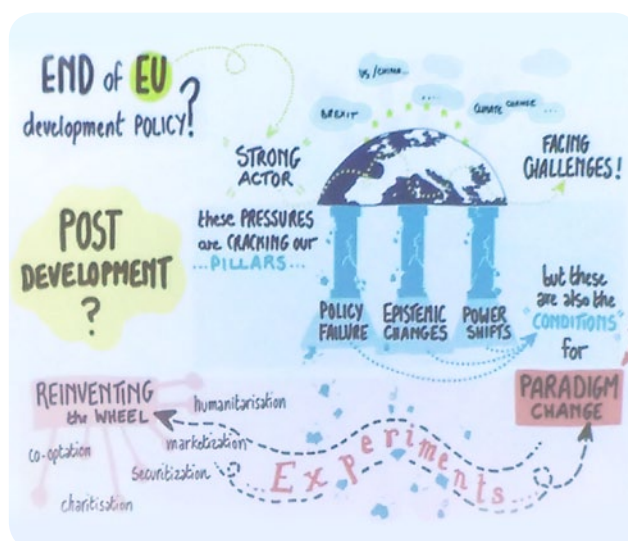 END of EU
development POLICY?
US/CHINA...
....
BREXIT
CLIMATE CHANGE ...
STRONG
ACTOR
FACING
CHALLENGES!
these PRESSURES
are CRACKING our
...PILLARS...
POST
DEVELOPMENT
?
POLICY
FAILURE
EPISTEMIC
CHANGES
POWER
SHIFTS
but these
are also the
"CONDITIONS"
for
PARADIGM
CHANGE
REINVENTING
the WHEEL
humanitarisation
marketization
co-optation
Securitization
charitisation
Experiments